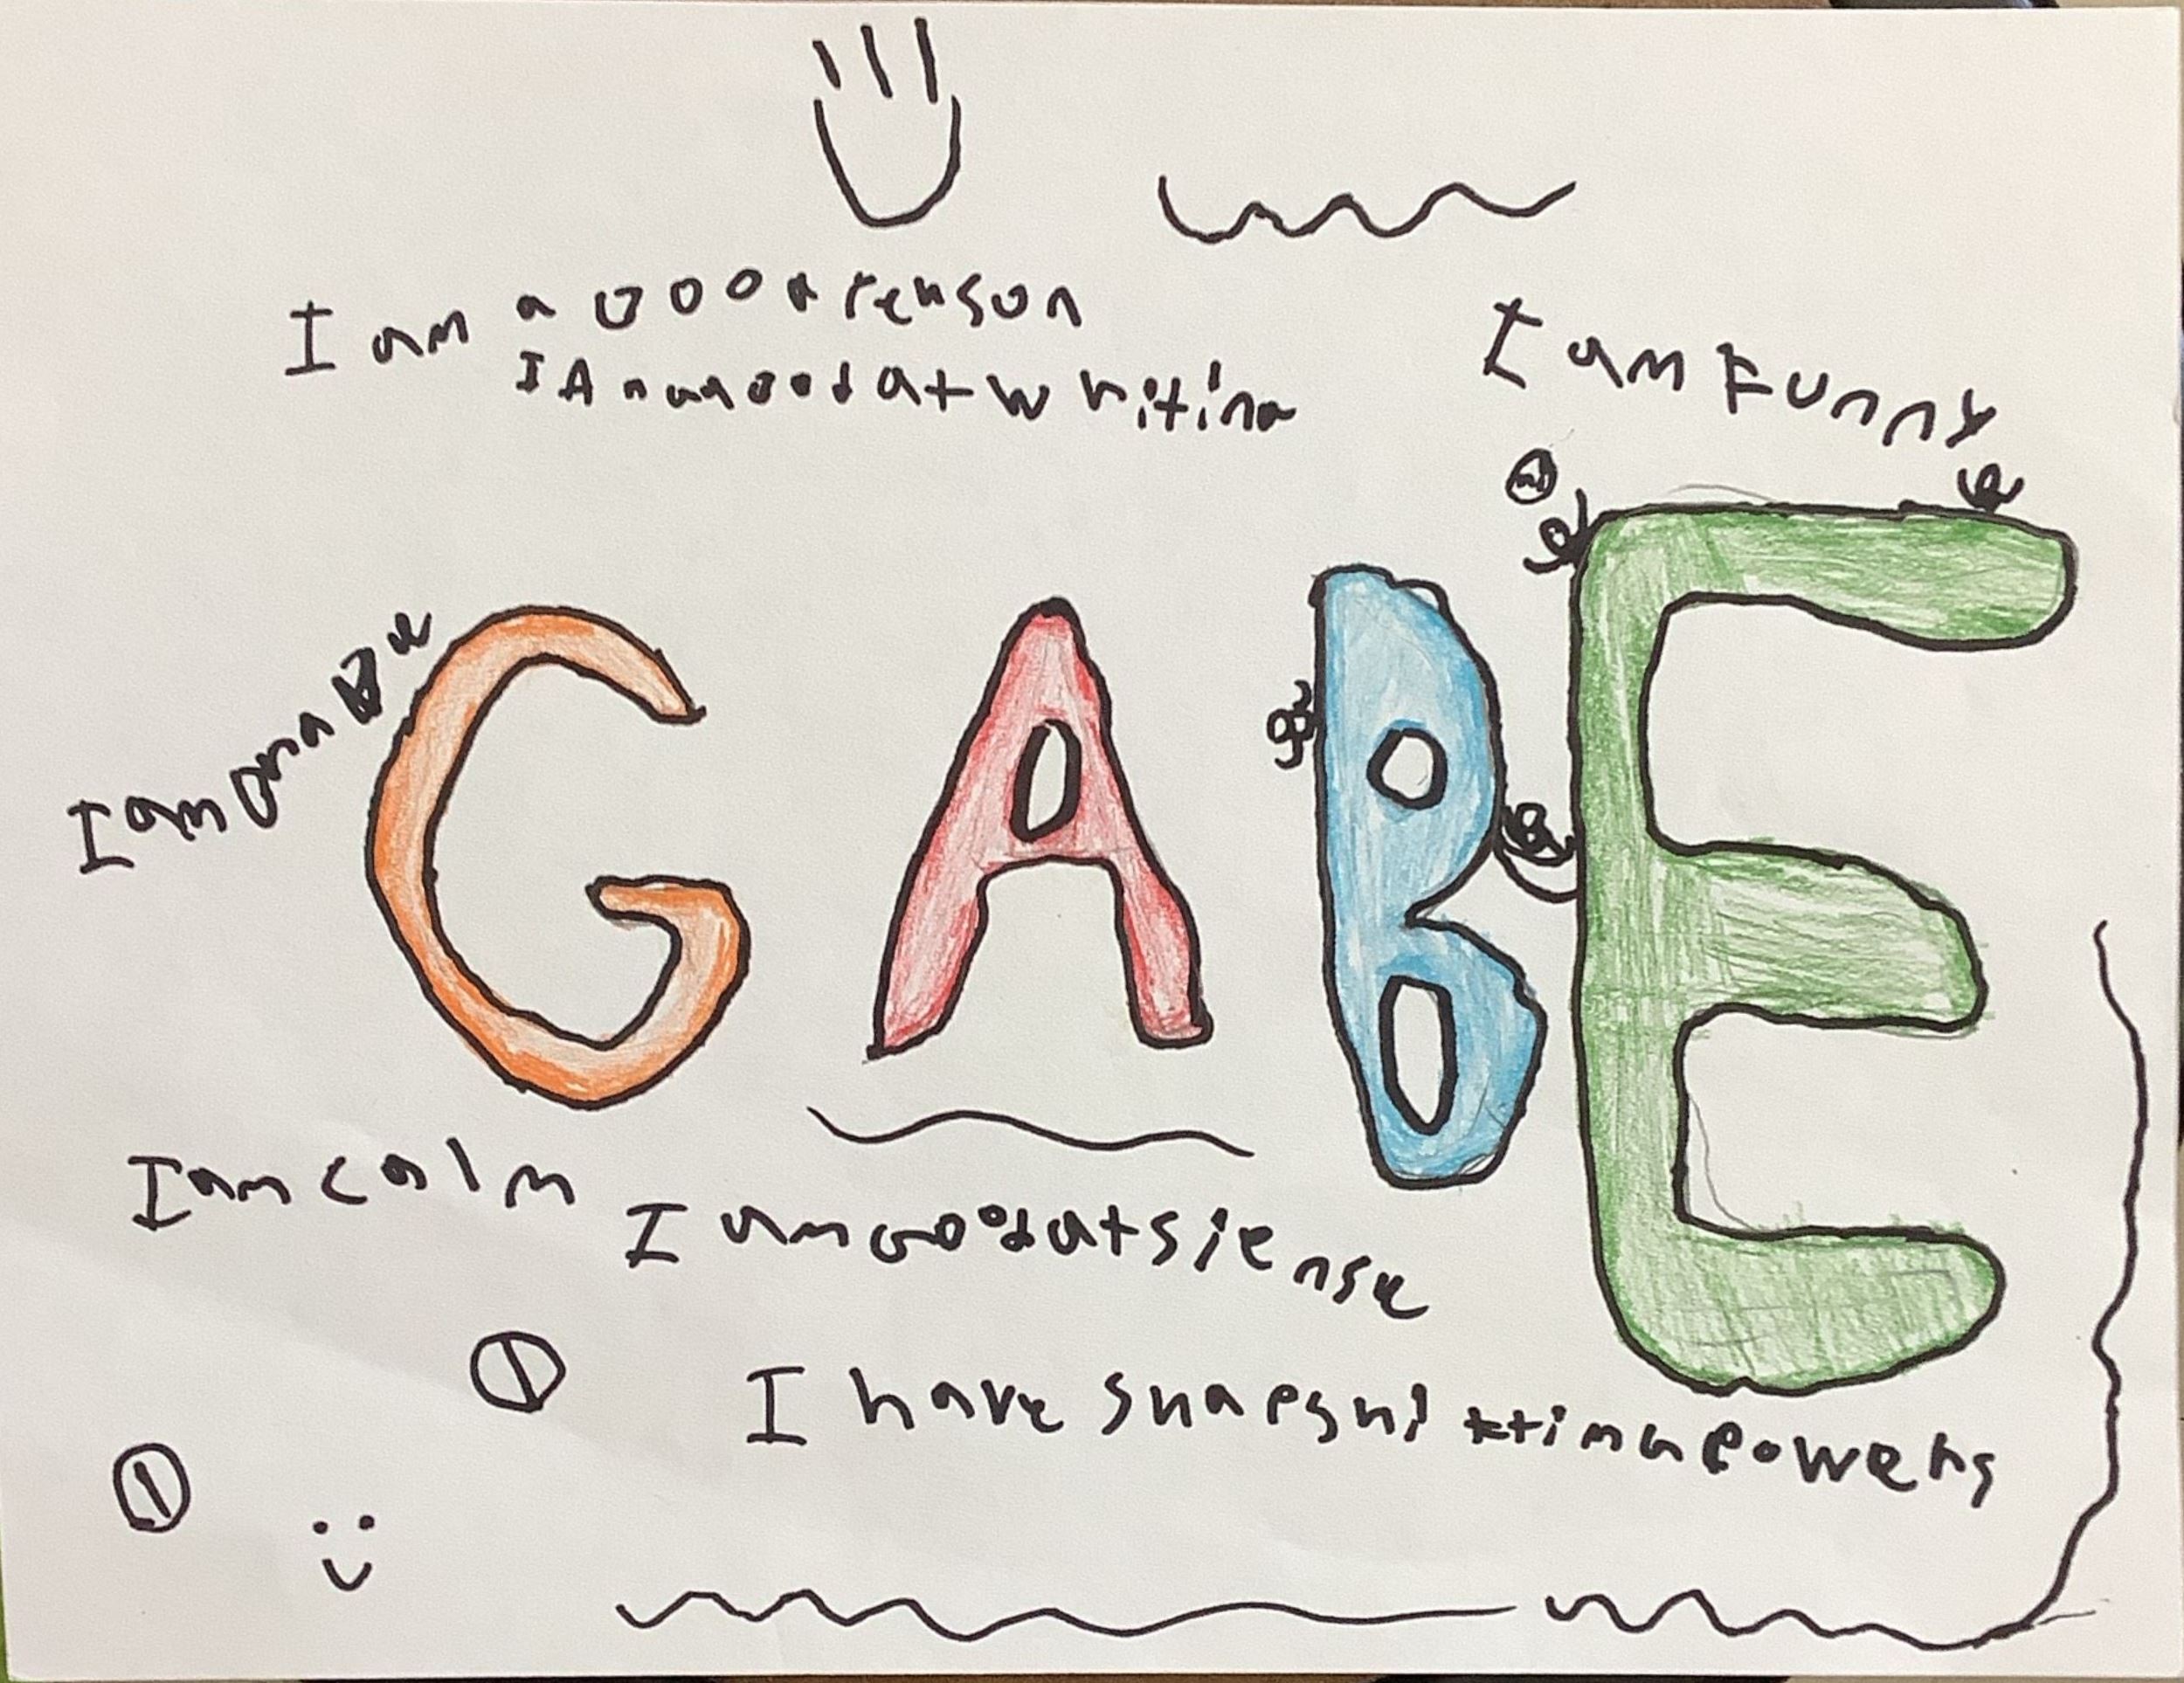 I am a good person
I Am good at writing
I am Funny
I am brave
GABE
I am calm
I am good at siense
I have shapshifting Powers